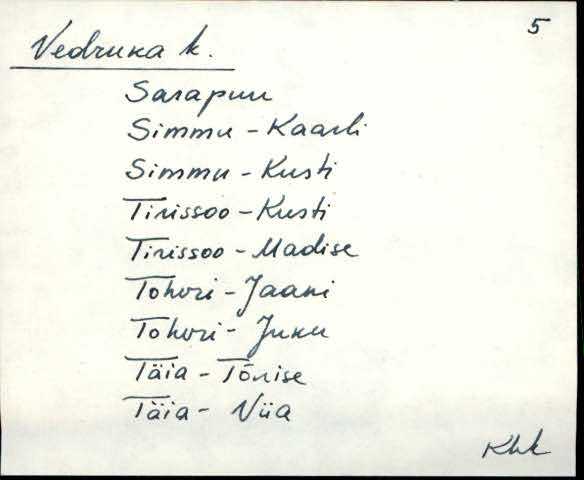 5
Vedruka k.
Sarapuu
Simmu - Kaarli
Simmu - Kusti
Tirissoo - Kusti
Tirissoo - Madise
Tohvri - Jaani
Tohvri - Juku
Täia - Tõnise
Täia - Viia
Khk